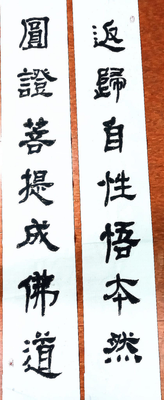 返歸自性悟本然
圓證菩提成佛道